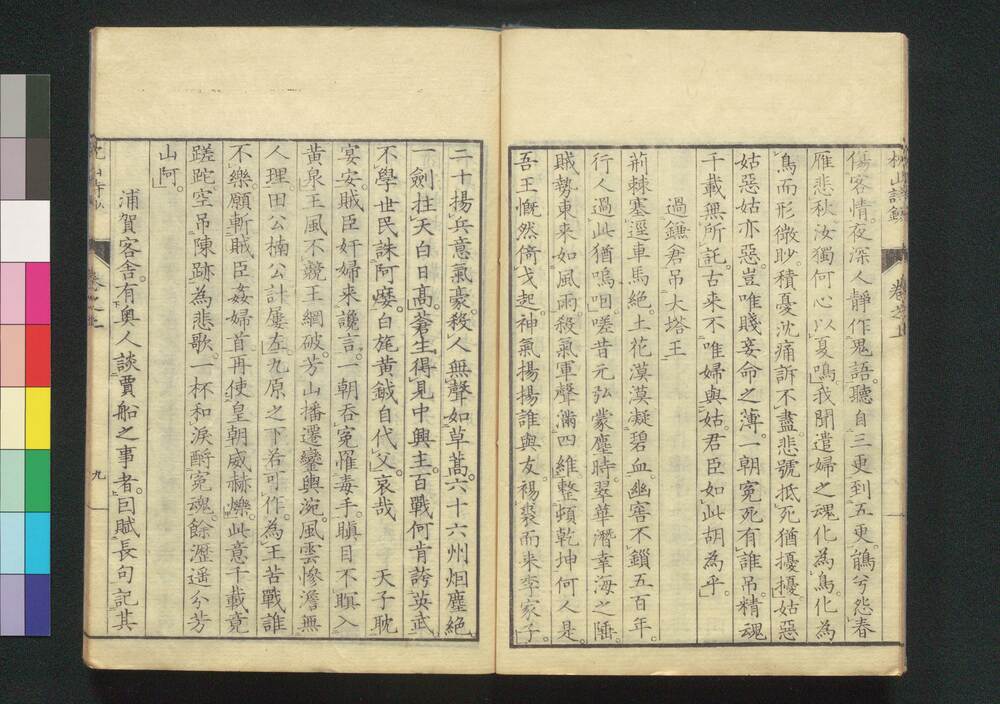 傷客情夜深人靜作鬼語聽自三更到五更鵑兮怨春
雁悲秋汝獨何心以夏鳴我聞遣婦之魂化為鳥化為
鳥而形微眇積憂沈痛訴不盡悲號抵死猶擾擾姑惡
姑惡姑亦惡豈唯賤妾命之薄一朝冤死有誰吊精魂
千載無所託古來不唯婦與姑君臣如此胡為乎
過鐮倉吊大塔王
荊棘塞逕車馬絕土花漠漠凝碧血幽窖不鎖五百年
行人過此猶嗚咽嗟昔元弘蒙塵時翠華潛幸海之陲
賊勢東來如風雨殺氣軍聲滿四維整頓乾坤何人是
吾王慨然倚戈起神氣揚揚誰與友裼裘而来李家子
二十揚兵意氣豪殺人無聲如草蒿六十六州烟塵絕
一劍拄天白日高蒼生得見中興主百戰何肯誇英武
不學世民誅阿㜑白旄黃鉞自代父哀哉 天子耽
宴安賊臣奸婦来讒言一朝吞冤罹毒手瞋目不瞑入
黃泉王風不競王綱破芳山播遷鑾輿涴風雲慘澹無
人理田公楠公計屢左九原之下若可作為王苦戰誰
不樂願斬賊臣姦婦首再使皇朝威赫爍此意千載竟
蹉跎空吊陳跡為悲歌一杯和淚酹冤魂餘瀝遥分芳
山阿
浦賀客舎有奧人談賈船之事者因賦長句記其
卷之上
九